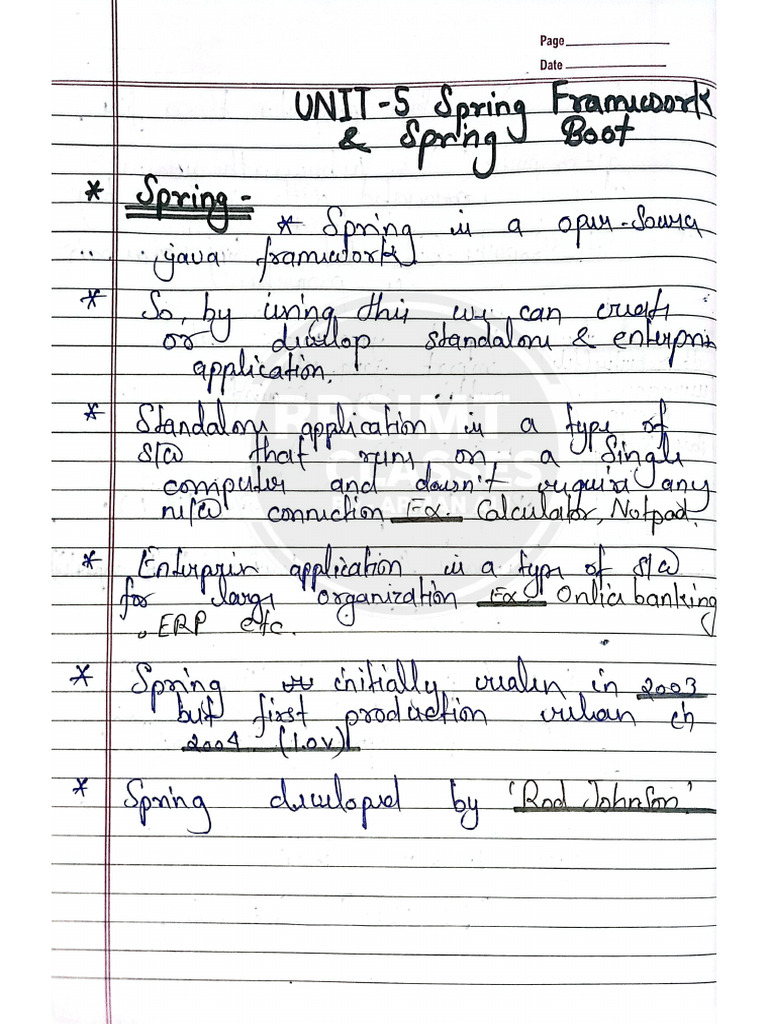 Page
Date
UNIT-5 Spring Framework
& Spring Boot
* Spring -
* Spring is a open-source
java framework
* So, by using this we can create
or develop standalone & enterprise
application.
* Standalone application is a type of
s/w that runs on a single
computer and doesn't require any
n/w connection Ex. Calculator, Notpad.
* Enterprise application is a type of s/w
for large organization Ex. Online banking
, ERP etc.
* Spring initially realese in 2003
but first production release in
2004 (1.0v)
* Spring developed by 'Rod Johnson'
CLASSES